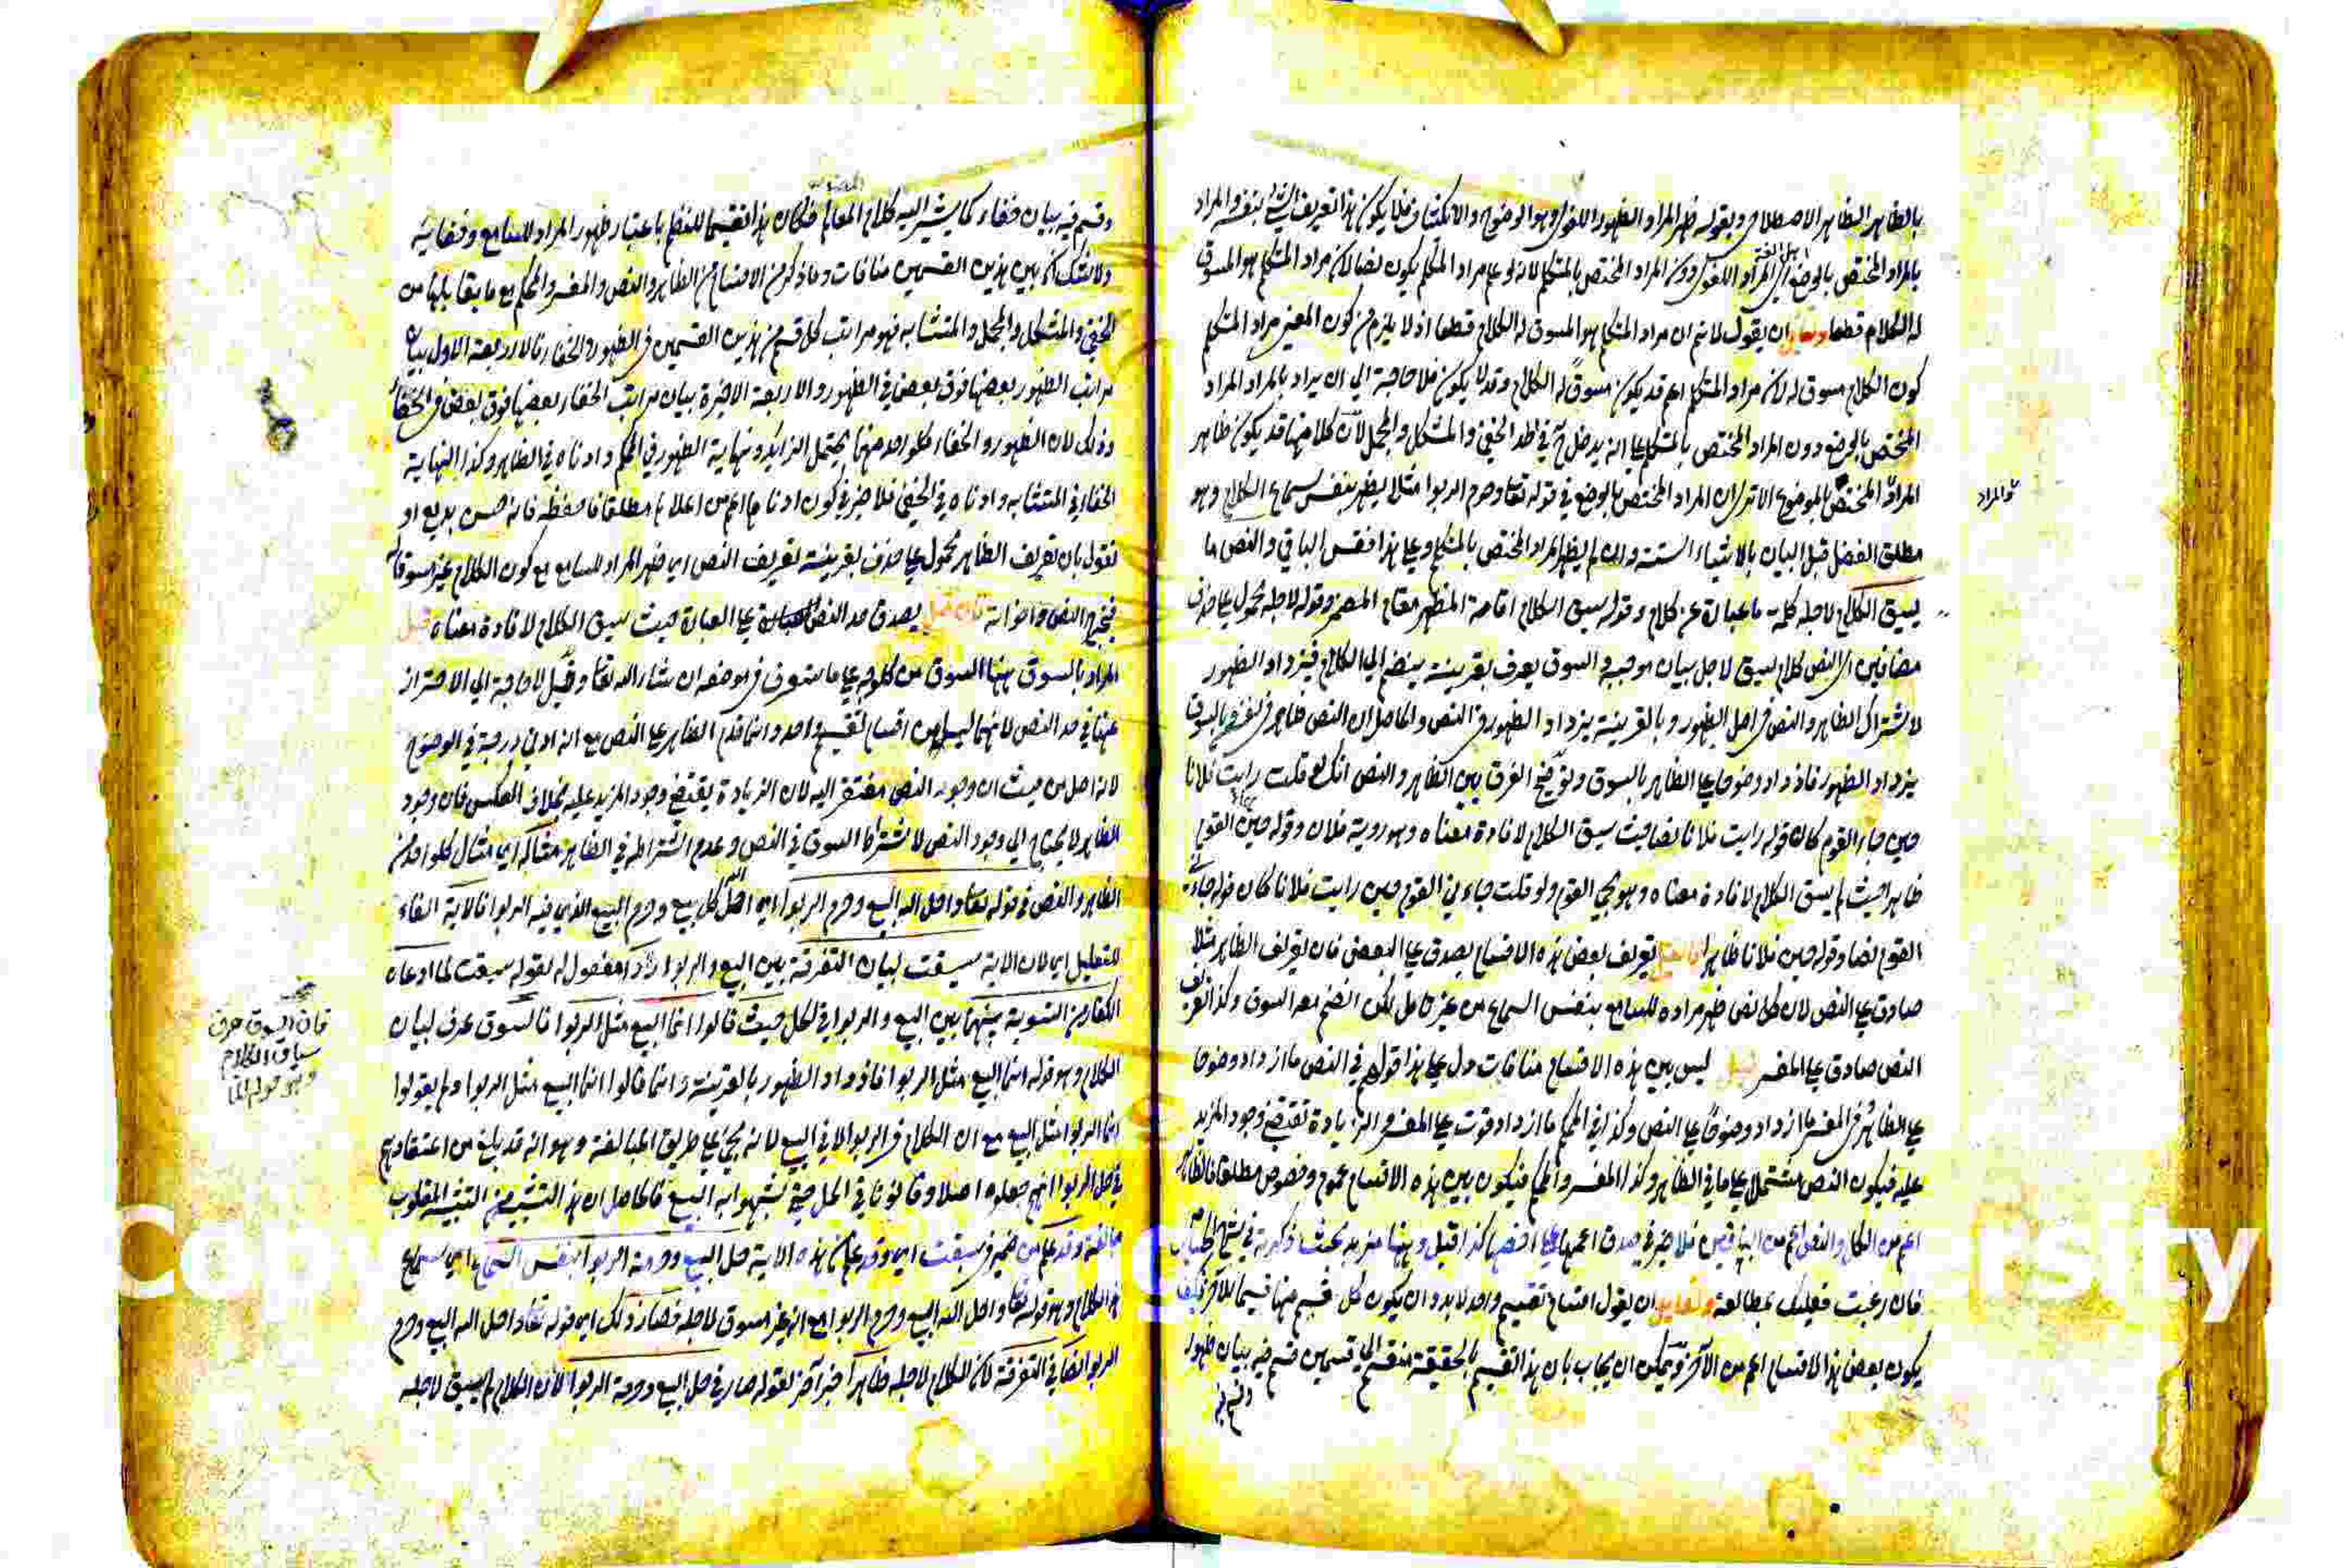 بالظاهر الظاهر الاصطلاحي وبقوله ظهر المراد الظهور اللغوي وهو الوضوح والانكشاف فلا يكون هذا تعريف الشيء بنفسه والمراد
بالمراد المختص بالوضع اي المراد اللغوي دون المراد المختص بالمتكلم لانه لو علم مراد المتكلم يكون نصا لان مراد المتكلم هو المسوق
له الكلام قطعا ان يقول لانم ان مراد المتكلم هو المسوق له الكلام قطعا اذ لا يلزم من كون المعنى مراد المتكلم
كون الكلام مسوق له لان مراد المتكلم اعم قد يكون مسوق له الكلام وقد لا يكون فلا حاجة الى ان يراد بالمراد المراد
المختص بالوضع دون المراد المختص بالمتكلم على انه يدخل ح في الحد الخفي والمشكل والمجمل لان كلا منها قد يكون ظاهر
المراد المختص بالموضوع الا ترى ان المراد المختص بالوضع في قوله تعا وحرم الربوا مثلا يظهر بنفس سماع الكلام وهو
والمراد
مطلق الفضل قبل البيان بالاشياء الستة وان لم يظهر المراد المختص بالمتكلم وعلى هذا فقس الباقي والنص ما
يسق الكلام لاجله كلمة ما عبارة عن كلام وقوله سيق الكلام اقامة المظهر مقام المضمر وقوله لاجله محمول على حذف
مضافين اي النص كلام سيق لاجل بيان موجبه والسوق يعرف بقرينة ينضم الى الكلام فيزداد الظهور
لاشتراك الظاهر والنص في اصل الظهور وبالقرينة يزداد الظهور في النص والحاصل ان النص ظاهر وبالسوق
يزداد الظهور فاذ داد وضوحا على الظاهر بالسوق وتوضيح الفرق بين الظاهر والنص انك لو قلت رايت فلانا
حين جاء القوم كان قوله رايت فلانا نصا حيث سيق الكلام لافادة معناه وهو روية فلان وقوله حين القوم
ظاهرا حيث لم يسق الكلام لافادة معناه وهو مجي القوم ولو قلت جاءني القوم حين رايت فلانا كان قوله جاء
القوم نصا وقوله حين فلانا ظاهرا تعريف بعض هذه الاقسام يصدق على البعض فان تعريف الظاهر مثلا
صادق على النص لان كل نص ظهر مراده للسامع بنفس السماع من غير تامل لكن انضم معه السوق وكذا تعريف
النص صادق على المفسر ليس بين هذه الاقسام منافات دل على هذا قولهم في النص ما ازداد وضوحا
على الظاهر وفي المفسر ما ازداد وضوحا على النص وكذا في المحكم ما ازداد قوت على المفسر والزيادة تقتضي وجود المزيد
عليه فيكون النص مشتملا على ما في الظاهر وكذا المفسر والمحكم فيكون بين هذه الاقسام عموم وخصوص مطلقا فالظاهر
اعم من الكل والنص اعم من الباقيين فلا ضير في صدق اعمها على اخصها كذا قيل وههنا مزيد بحث ذكرته في
فان رغبت فعليك بمطالعة ان يقول اقسام تقسيم واحد لابد وان يكون كل قسم منها قسيما للآخر فكيف
يكون بعض هذا الاقسام اعم من الآخر ويمكن ان يجاب بان هذا التقسيم بالحقيقة منقسم الى قسمين قسم فيه بيان ظهور
وقسم فيه
وقسم فيه بيان خفاء كما يشير اليه كلام المصنف فكان هذا تقسيما للنظم باعتبار ظهور المراد للسامع وخفائه
ولا شك ان بين هذين القسمين منافات وما ذكر من الاقسام من الظاهر والنص والمفسر والمحكم مع ما يقابلها من
الخفي والمشكل والمجمل والمتشابه فهو مراتب كل قسم من هذين القسمين في الظهور والخفاء فالاربعة الاول بيان
مراتب الظهور بعضها فوق بعض في الظهور والاربعة الاخيرة بيان مراتب الخفاء بعضها فوق بعض في الخفاء
وذلك لان الظهور والخفاء كل واحد منهما يحتمل التزايد ونهاية الظهور في المحكم وادناه في الظاهر وكذا النهاية
الخفاء في المتشابه وادناه في الخفي فلا ضير في كون ادناها اعم من اعلاها مطلقا فاحفظه فانه حسن بديع او
نقول بان تعريف الظاهر محمول على حذف بقرينة تعريف النص اي ظهر المراد للسامع مع كون الكلام غير مسوق له
فيخرج النص واخواته فان قيل يصدق حد النص على العبارة حيث سيق الكلام لافادة معناه قيل
المراد بالسوق ههنا السوق من كل وجه على ما ستعرف في موضعه ان شاء الله تعا وقيل لا حاجة الى الاحتراز
عنها في حد النص لانهما ليسا من اقسام تقسيم واحد وانما قدم الظاهر على النص مع انه ادنى درجة في الوضوح
لانه اصل من حيث ان وجود النص مفتقر اليه لان الزيادة يقتضي وجود المزيد عليه بخلاف العكس فان وجود
الظاهر لا يحتاج الى وجود النص لاشتراط السوق في النص وعدم اشتراطه في الظاهر مثاله اي مثال كل واحد من
الظاهر والنص في قوله تعا واحل الله البيع وحرم الربوا اي احل الله كل بيع وحرم البيع الذي فيه الربوا فالآية الفاء
للتعليل اي لان الاية سيقت لبيان التفرقة بين البيع والربوا ردا مفعول له لقوله سيقت لما ادعاه
الكفار من التسوية بينهما بين البيع والربوا في الحل حيث قالوا انما البيع مثل الربوا فالسوق عرف لبيان
فان السوق عرف
سياق الكلام
وهو قوله انما
الكلام وهو قوله انما البيع مثل الربوا فازداد الظهور بالقرينة وانما قالوا انما البيع مثل الربوا ولم يقولوا
انما الربوا مثل البيع مع ان الكلام في الربوا لا في البيع لانه يجئ على طريق المبالغة وهو انه قد بلغ من اعتقادهم
في حل الربوا انهم جعلوه اصلا وقانونا في الحل حتى شبهوا به البيع فالحاصل ان هذا التشبيه من التشبيه المقلوب
مبالغة وقد علم من ضمير سيقت اي وقد علم ان هذه الاية حل البيع وحرمة الربوا بنفس السماع اي سماع
هذا الكلام وهو قوله تعا واحل الله البيع وحرم الربوا مع انه غير مسوق لاجله فصار ذلك اي قوله تعا واحل الله البيع وحرم
الربوا نصا في التفرقة لان الكلام لاجله ظاهرا خبر آخر لقوله صار في حل البيع وحرمة الربوا لان الكلام لم يسق لاجله